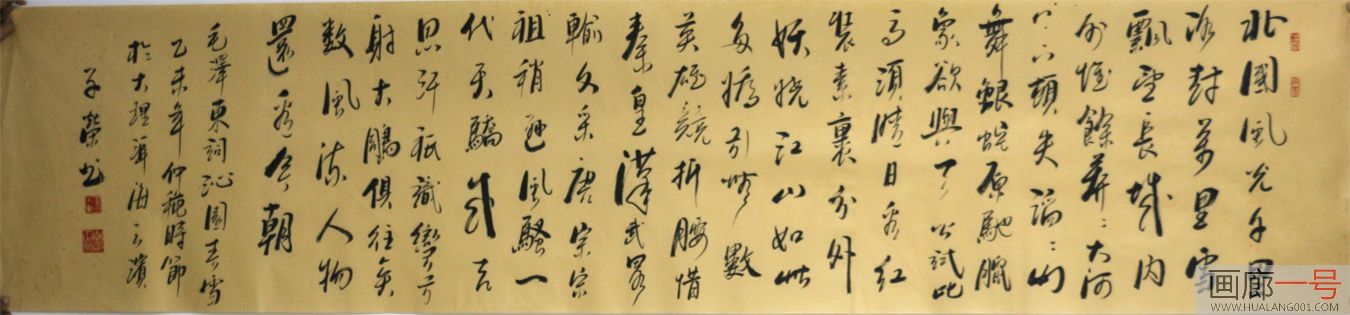 北國風光千里
冰封萬里雪
飄望長城內
外惟餘莽〻大河
上下頓失滔〻山
舞銀蛇原馳臘
象欲與天公試比
高須晴日看紅
裝素裹分外
妖嬈江山如此
多嬌引無數
英雄競折腰惜
秦皇漢武略
輸文采唐宗宋
祖稍遜風騷一
代天驕成吉
思汗祇識彎弓
射大鵰俱往矣
數風流人物
還看今朝
毛澤東詞沁園春雪
乙未年仲穐時節
於大理洱海之濱
榮书
画廊一号
WWW.HUALANG001.COM